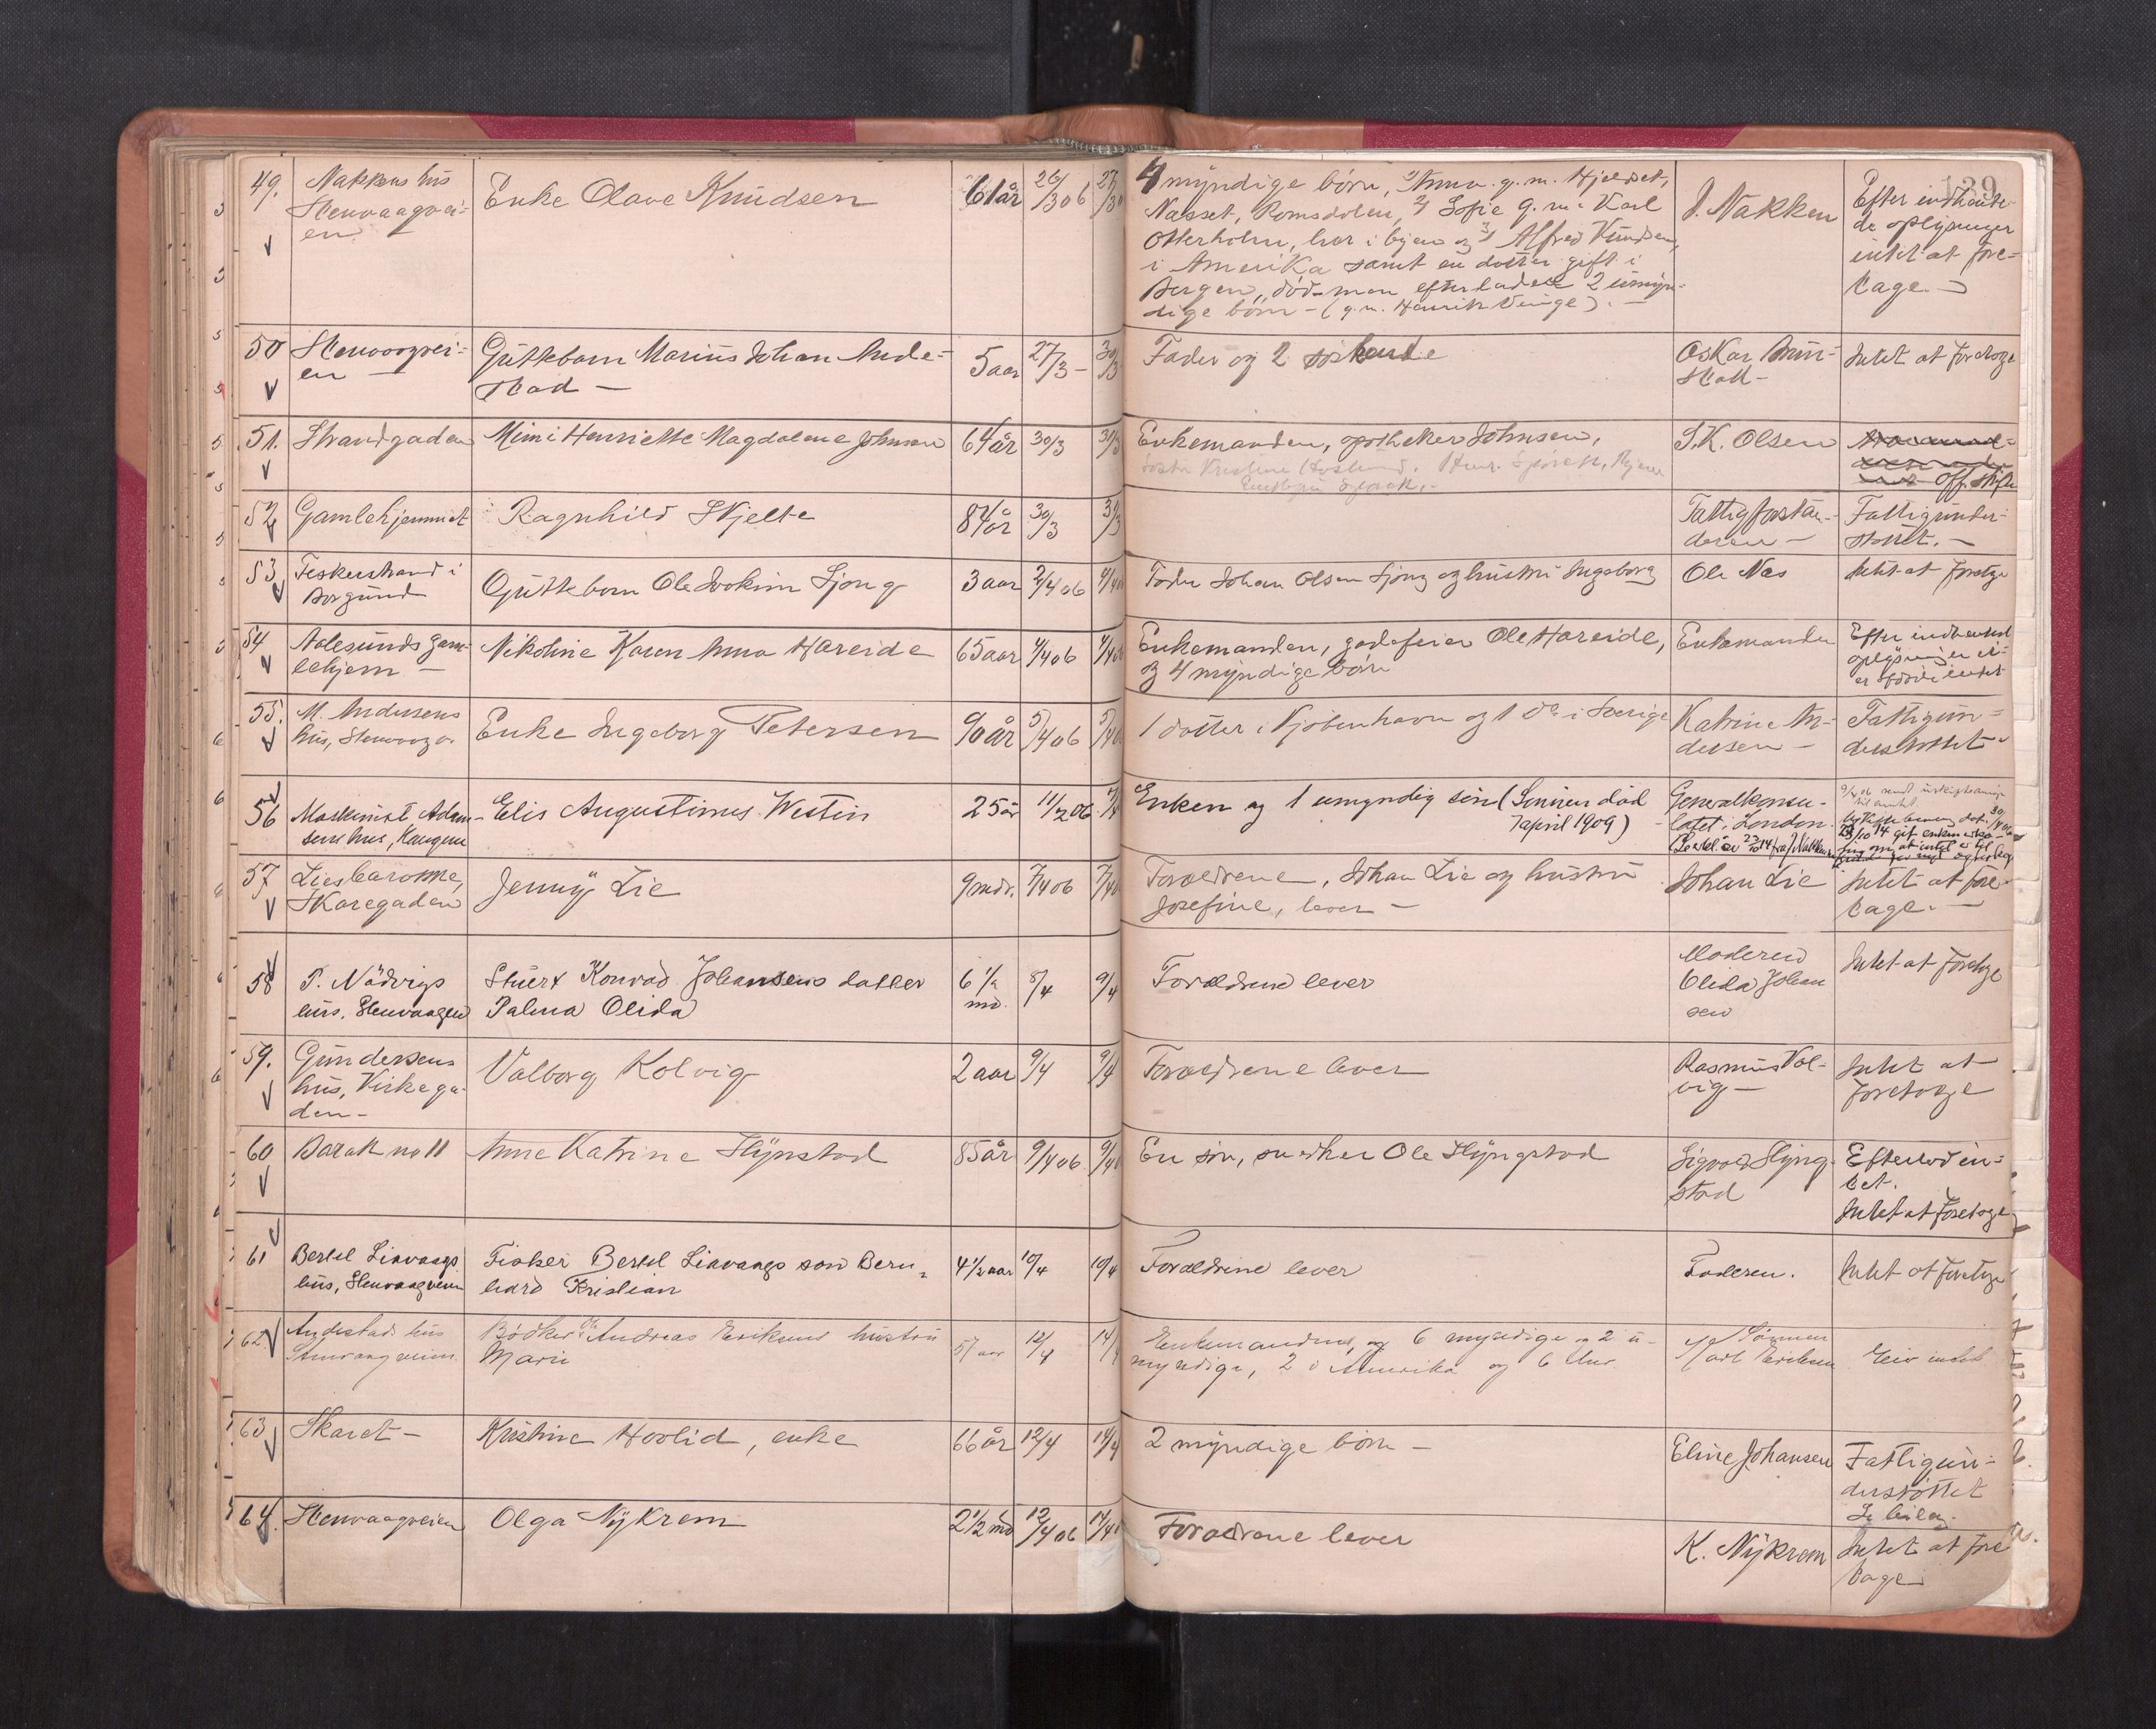 139
49. Nakkens hus Enke Olave Knudsen 61 år 26/3 06 27/3 0 4 myndige børn, 1) Anna g.m. Hjelset, J. Nakken Efter indhente-
Stenvaagvei- Nasset, Romsdalen, 2) Sofie g.m. Karl de oplysninger
en Otterholm, her i byen og 3) Alfred Knudsen, intet at fore-
i Amerika samt en datter gift i tage. -
Bergen, død men efterladt 2 umyn-
dige børn - (g.m. Henrik Vinge). -
50 Stenvaagvei- Guttebarn Marius Johan Ande- 5 aar 27/3 - 30/3 Fader og 2 søskende Oskar Intet at foretage
en - stad -
51. Strandgaden Mimi Henriette Magdalene Johnsen 64 år 30/3 30/3 Enkemanden, apotheker Johnsen, S.K. Olsen
Søster Kristine
Off. skifte
52 Gamlehjemmet Ragnhild Skjelte 84 år 30/3 31/3 Fattigforstan- Fattigunder-
deren - støttet. -
53 Fiskerstrand i Guttebarn Ole Joakim Sjong 3 aar 2/4 06 4/4 06 Fader Johan Olsen Sjong og hustru Ingeborg Ole Nes Intet at foretage
Borgund
54 Aalesunds gam- Nikoline Karen Anna Hareide 65 aar 4/4 06 4/4 06 Enkemanden, gadefeier Ole Hareide, Enkemanden Efter indhentet
lehjem - og 4 myndige børn oplysning er
55. M. Andersens Enke Ingeborg Petersen 90 år 5/4 06 5/4 06 1 datter i Kjøbenhavn og 1 do i Sverige Katrine An- Fattigun-
hus, Stenvaagv. dersen - derstøttet
56 Maskinist Adam- Elis Augustinus Westin 25 år 11/2 06 Enken og 1 umyndig søn (Sønnen død Generalkonsu-
sens hus, Haugen 7 april 1909) latet i London.
57 Lies barakke, Jenny Lie 9 mdr. 7/4 06 7/4 06 Forældrene, Johan Lie og hustru Johan Lie Intet at fore-
Skaregaden Josefine, lever - tage. -
58 P. Nødvigs Stuert Konrad Johansens datter 6 1/2 8/4 9/4 Forældrene lever Moderen Intet at foretage
hus, Stenvaagen Palma Olida md. Olida Johan
sen
59. Gundersens Valborg Kolvig 2 aar 9/4 9/4 Forældrene lever Rasmus Kol- Intet at
hus, Kirkega- vig - foretage
den -
60 Barak no 11 Anne Katrine Slyngstad 85 år 9/4 06 9/4 06 En søn, snedker Ole Slyngstad Sigvald Slyng- Efterlod in-
stad tet.
Intet at foretage
61 Bertel Liavaags Fisker Bertel Liavaags søn Bern- 4 1/2 aar 10/4 10/4 Forældrene lever Faderen. Intet at foretage
hus, Stenvaagveien hard Kristian
62 Andestads hus Bødker Ole Andreas Eriksens hustru 57 aar 12/4 14/4 Enkemanden, og 6 myndige og 2 u- Sønnen Eier intet
Stenvaagveien Marie myndige, 2 i Amerika og 6 her Karl Eriksen
63 Skaret - Kristine Hovlid, enke 66 år 12/4 14/4 2 myndige børn - Eline Johansen Fattigun-
derstøttet
Se bilag.
64. Stenvaagveien Olga Nykrem 2 1/2 md 12/4 06 14/4 0 Forældrene lever K. Nykrem Intet at fore
tage